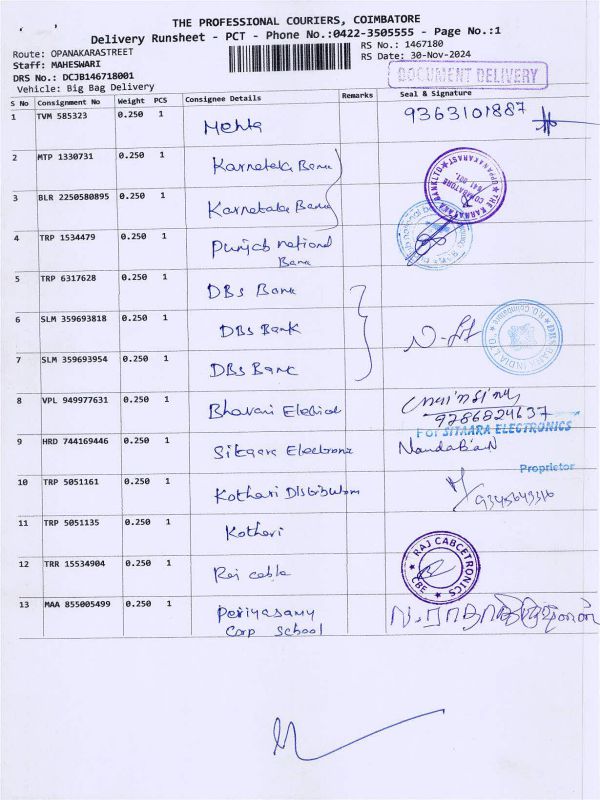 THE PROFESSIONAL COURIERS, COIMBATORE
Delivery Runsheet - PCT - Phone No.:0422-3505555 - Page No.:1
Route: OPANAKARASTREET
RS No.: 1467180
Staff: MAHESWARI
RS Date: 30-Nov-2024
DRS No.: DCJB146718001
Vehicle: Big Bag Delivery
DOCUMENT DELIVERY
S No Consignment No Weight PCS Consignee Details Remarks Seal & Signature
1 TVM 585323 0.250 1 Mehta 9363101887
2 MTP 1330731 0.250 1 Karnataka Bank
3 BLR 2250580895 0.250 1 Karnataka Bank
THE KARNATAKA BANK LTD
COIMBATORE
4 TRP 1534479 0.250 1 Punjab national
Bank
5 TRP 6317628 0.250 1 DBs Bank
6 SLM 359693818 0.250 1 DBs Bank
DBS BANK INDIA LTD
R.O. Coimbatore
7 SLM 359693954 0.250 1 DBs Bank
8 VPL 949977631 0.250 1 Bhavani Electrical
9286824637
For SITAARA ELECTRONICS
9 HRD 744169446 0.250 1 Sitaara Electronics
Proprietor
10 TRP 5051161 0.250 1 Kothari Distributors
9345643316
11 TRP 5051135 0.250 1 Kothari
12 TRR 15534904 0.250 1 Raj cable
RAJ CABCETRONICS
CBE
13 MAA 855005499 0.250 1 Periyasamy
Corp school